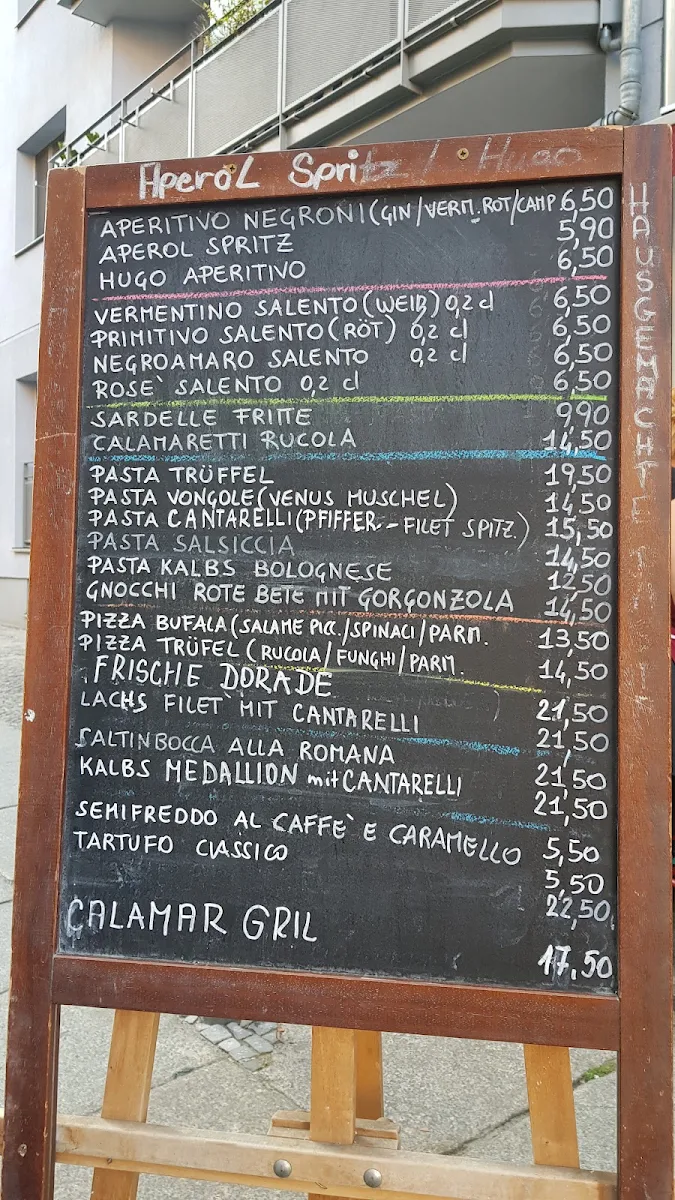 Aperol Spritz / Hugo
APERITIVO NEGRONI (GIN/VERM.ROT/CAMP 6,50
APEROL SPRITZ 5,90
HUGO APERITIVO 6,50
VERMENTINO SALENTO (WEIß) 0,2 cl 6,50
PRIMITIVO SALENTO (RÖT) 0,2 cl 6,50
NEGROAMARO SALENTO 0,2 cl 6,50
ROSE` SALENTO 0,2 cl 6,50
SARDELLE FRITTE 9,90
CALAMARETTI RUCOLA 14,50
PASTA TRÜFFEL 19,50
PASTA VONGOLE (VENUS MUSCHEL) 14,50
PASTA CANTARELLI (PFIFFER.-FILET SPITZ.) 15,50
PASTA SALSICCIA 14,50
PASTA KALBS BOLOGNESE 12,50
GNOCCHI ROTE BETE MIT GORGONZOLA 14,50
PIZZA BUFALA (SALAME PICC./SPINACI/PARM. 13,50
PIZZA TRÜFEL (RUCOLA/FUNGHI/PARM. 14,50
FRISCHE DORADE 21,50
LACHS FILET MIT CANTARELLI 21,50
SALTINBOCCA ALLA ROMANA 21,50
KALBS MEDALLION mit CANTARELLI 21,50
SEMIFREDDO AL CAFFE` E CARAMELLO 5,50
TARTUFO CIASSICO 5,50
22,50
CALAMAR GRIL 17,50
HAUSGEMACHTE